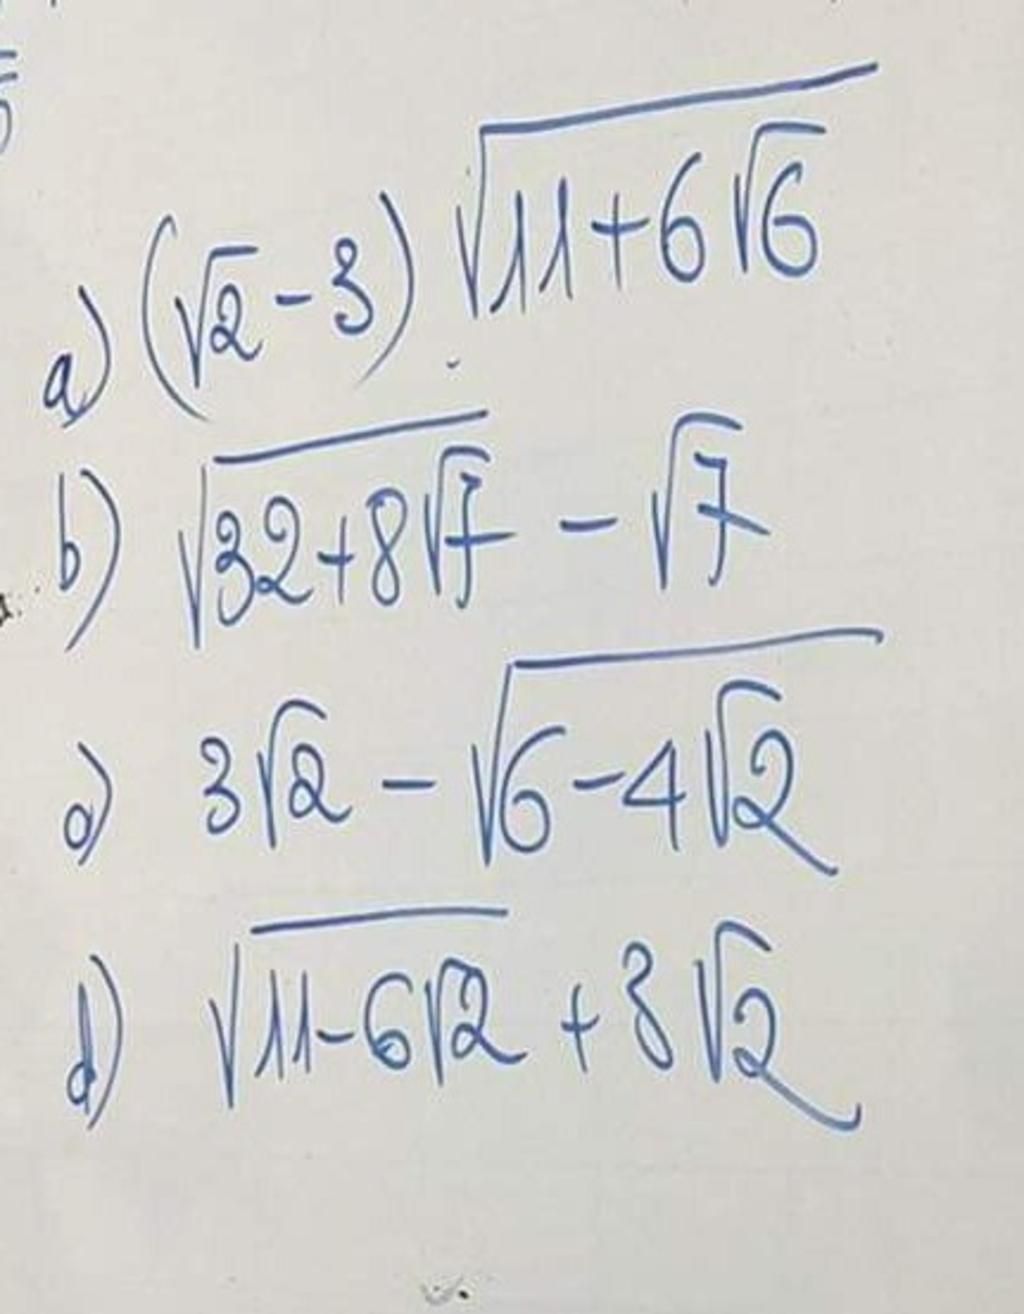 a) (√2 - 3) √(11 + 6√6)
b) √(32 + 8√7) - √7
c) 3√2 - √(6 - 4√2)
d) √(11 - 6√2) + 3√2